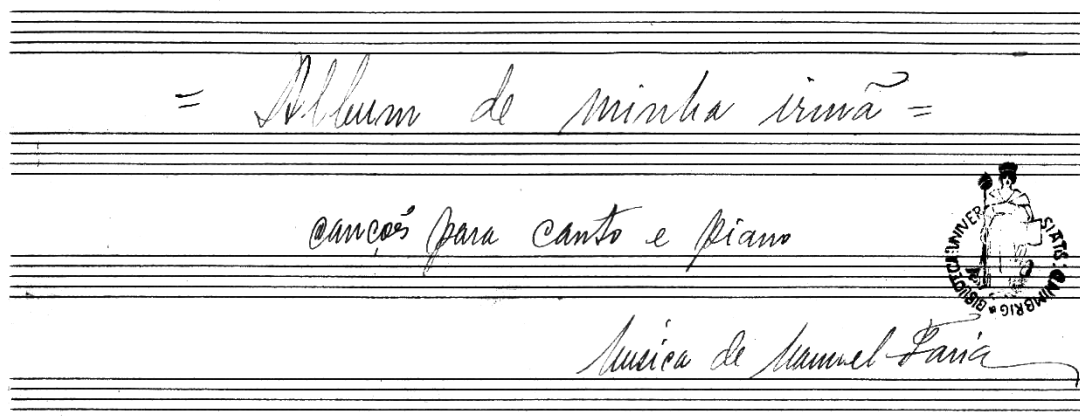 = Album de minha irmã =
canções para canto e piano
BIBLIOTECA: UNIVERSITATIS CONIMBRIG
Musica de Manuel Faria